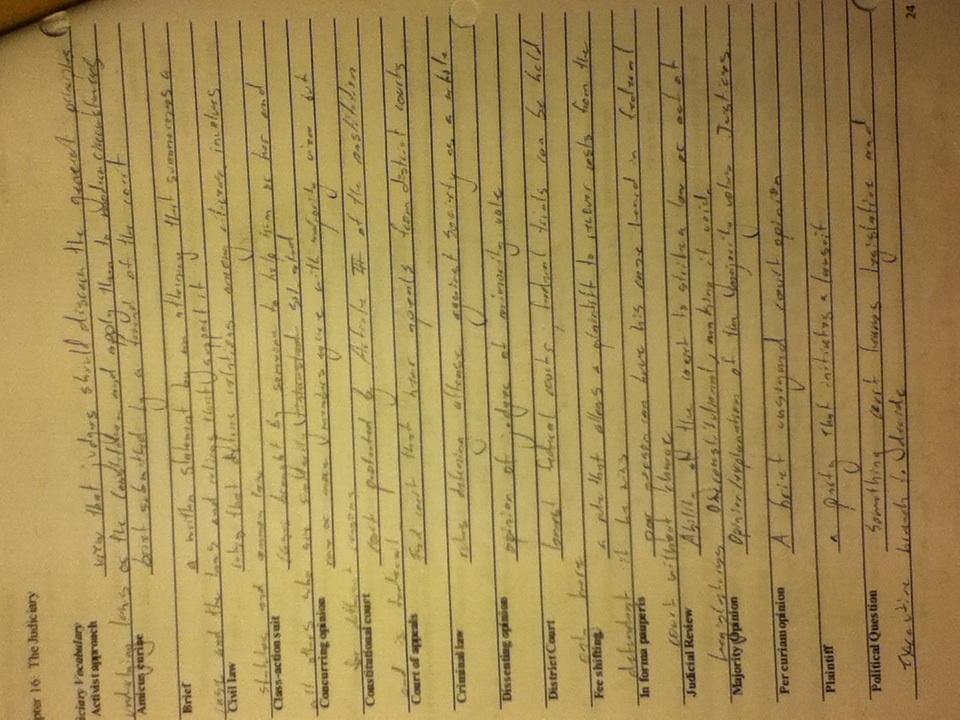 pter 16: The Judiciary
iciary Vocabulary
Activist approach view that judges should discern the general principles
underlying laws or the Constitution and apply them to modern circumstances
Amicus curiae brief submitted by a friend of the court
Brief a written statement by an attorney that summarizes a
case and the laws and rulings that support it
Civil law rules that define relations among citizens, involves
statutes and common law
Class-action suit cases brought by someone to help him or her and
all others who are similarly situated
Concurring opinion one or more members agree with majority view but
for different reasons
Constitutional court court protected by Article III of the constitution
and is federal
Court of appeals Fed court that hear appeals from district courts
Criminal law rules defining offense against society as a whole
Dissenting opinion opinion of judges of minority vote
District Court lowest federal courts; federal trials can be held
only here
Fee shifting a rule that allows a plaintiff to recover costs from the
defendant if he wins
In forma pauperis poor person can have his case heard in federal
court without charge
Judicial Review Ability of the court to strike a law or act of
legislatures unconstitutional, making it void.
Majority Opinion Opinion/explanation of the majority votes Justices
Per curiam opinion A brief unsigned court opinion
Plaintiff a party that initiates a lawsuit
Political Question Something court leaves legislative and
executive branch to decide
24